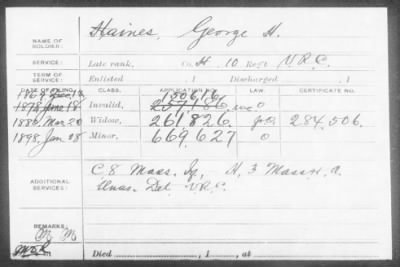 NAME OF SOLDIER: Haines, George H.
SERVICE: Late rank, Co. H, 10 Reg't V.R.C.
TERM OF SERVICE: Enlisted , 1 Discharged , 1
DATE OF FILING. CLASS. APPLICATION NO. LAW. CERTIFICATE NO.
1869 150616
1878 June 18 Invalid, 257186 0
1880 Mar 20 Widow, 261,826 284,506.
1898, Jan 28 Minor, 669,627 0
ADDITIONAL SERVICES: C, 8 Mass. If, H, 3 Mass H. A.
Unas. Det. V.R.C.
REMARKS:
Died , 1 , at